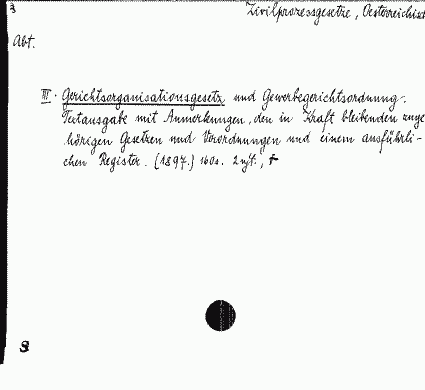 3
Zivilprozessgesetze, Oesterreichisch
Abt.
III. Gerichtsorganisationsgesetz und Gewerbegerichtsordnung.
Textausgabe mit Anmerkungen, den in Kraft bleibenden zuge
hörigen Gesetzen und Verordnungen und einem ausführli-
chen Register. (1897.) 160s.
8